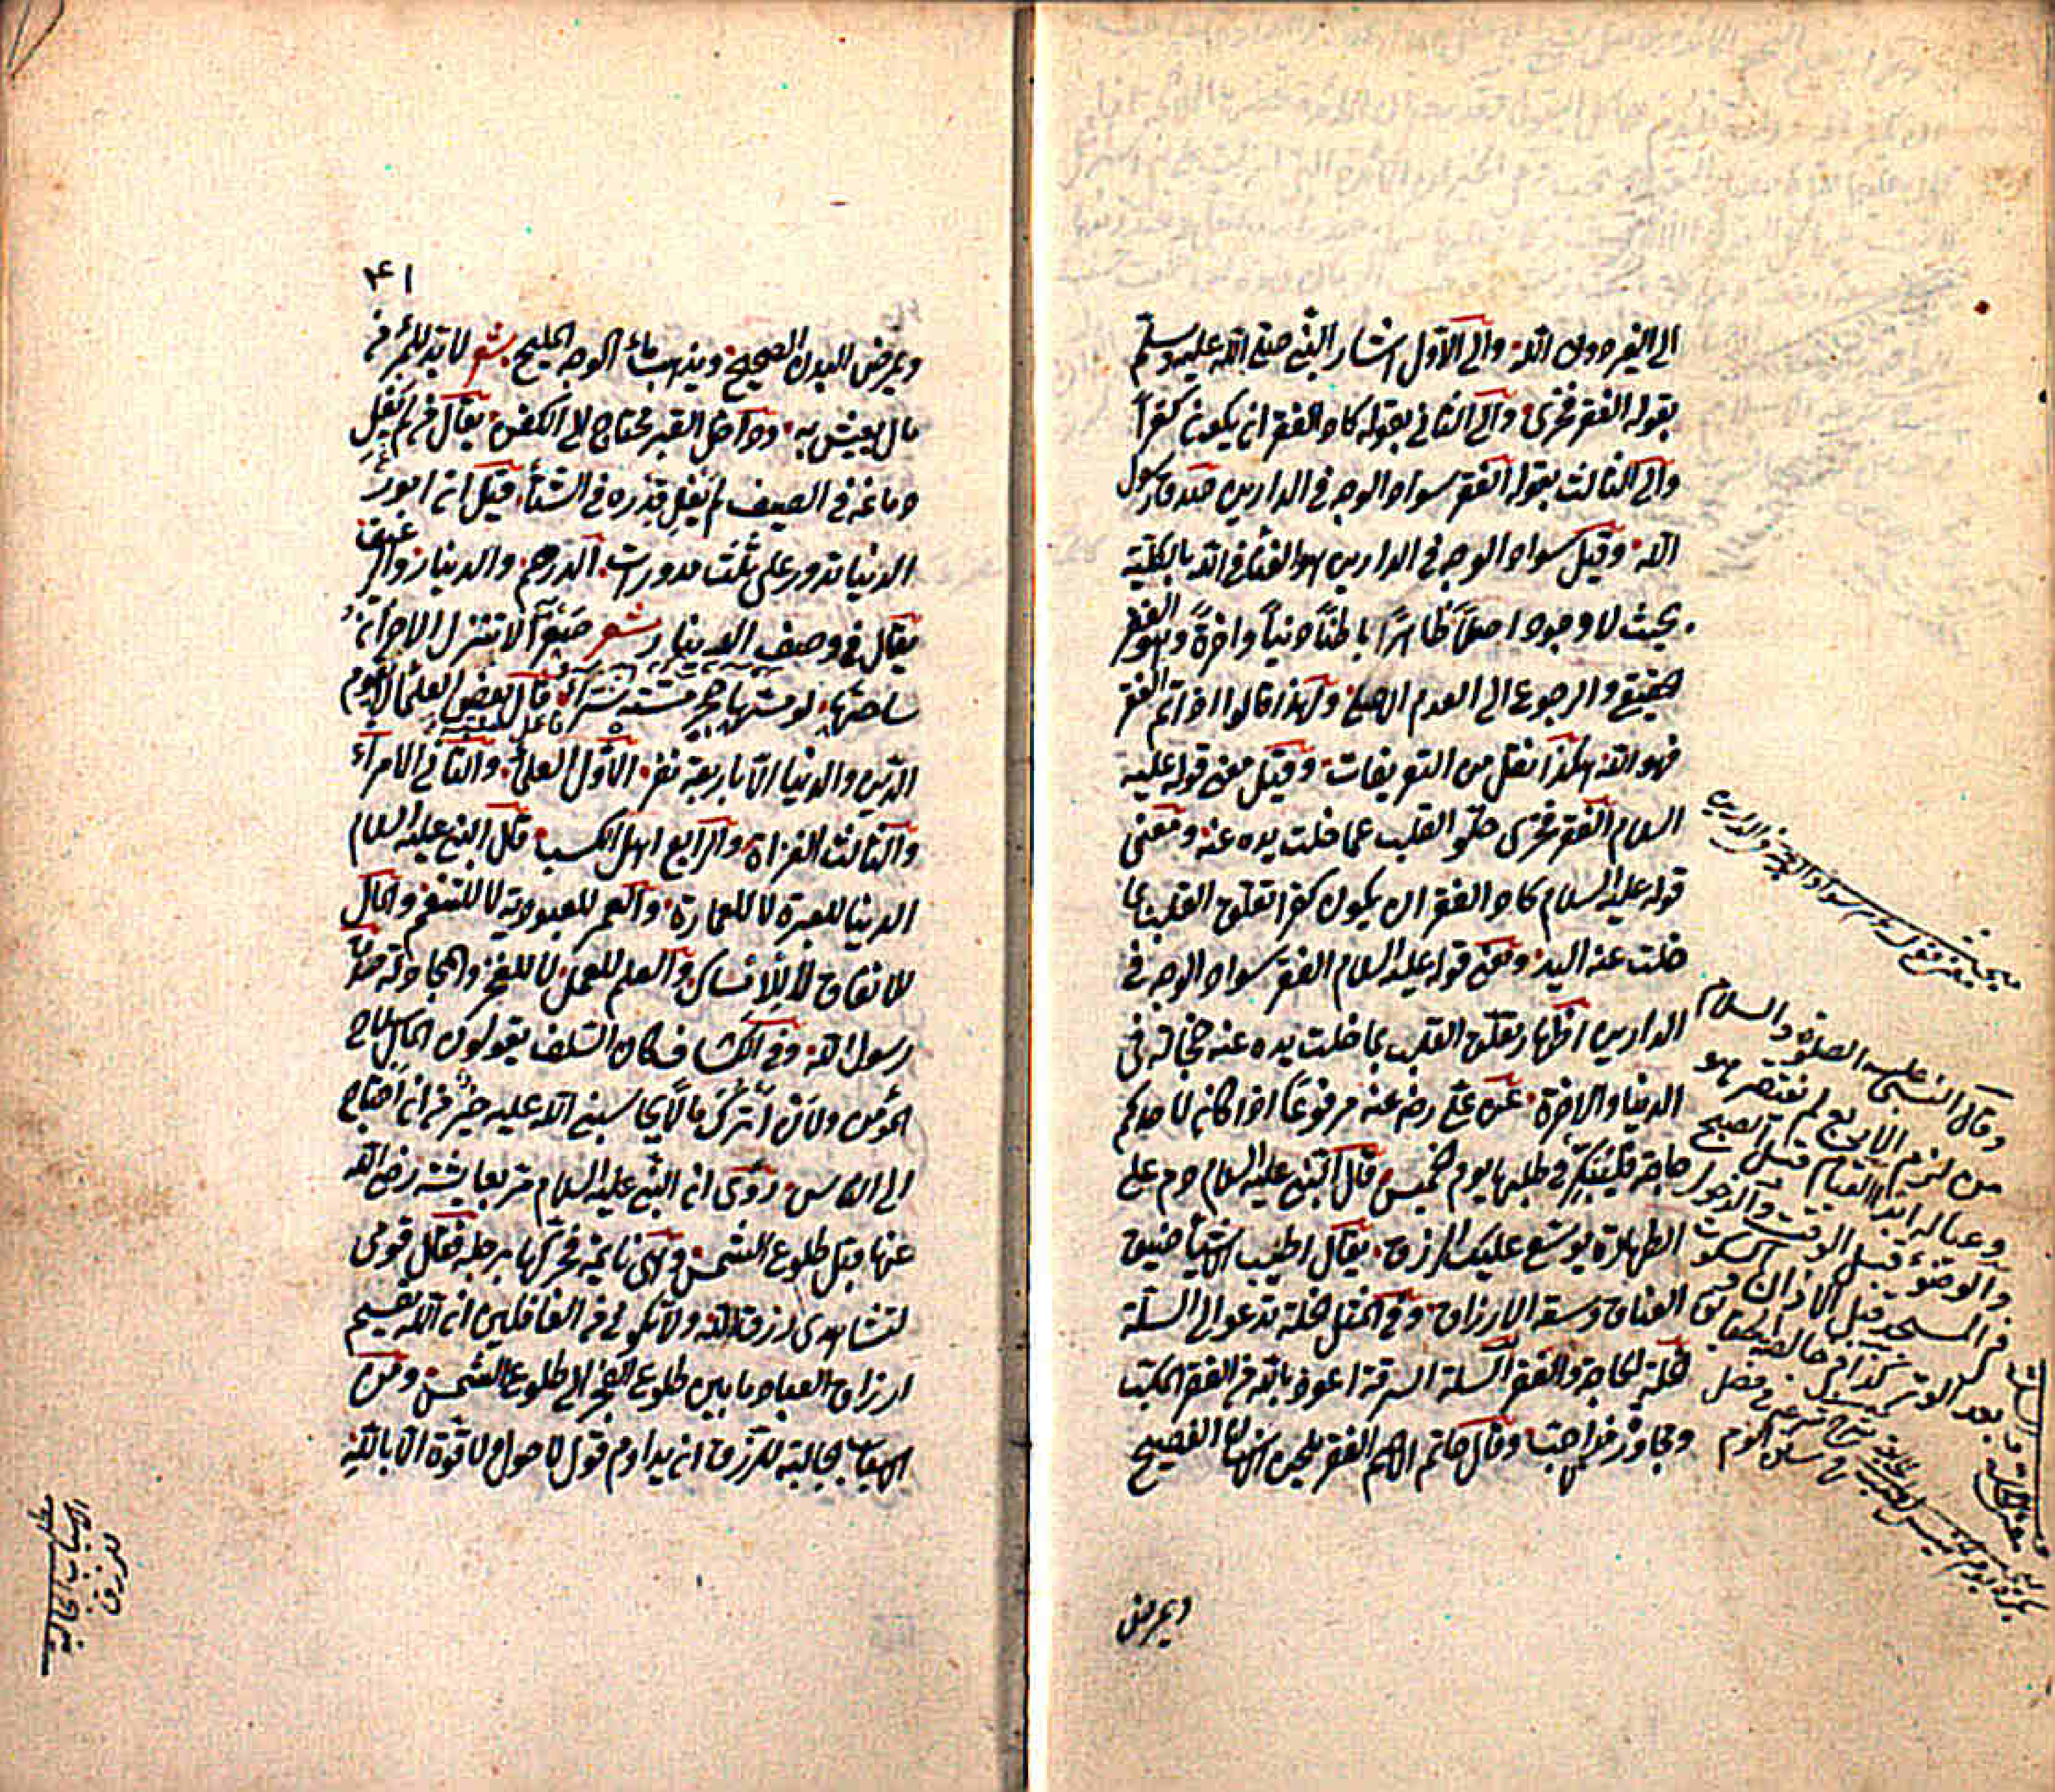 الى الغير دون الله والى الاول اشار النبي صلى الله عليه وسلم
بقوله الفقر فخرى والى الثانى بقوله كاد الفقر ان يكون كفرا
والى الثالث بقوله الفقر سواد الوجه فى الدارين صدق رسول
الله وقيل سواد الوجه فى الدارين هو الفناء فى الله بالكلية
بحيث لا وجود اصلاً ظاهرًا باطنًا دنياً واخرةً وهو الفقر
الحقيقى والرجوع الى العدم الاصلى ولهذا قالوا اذا تم الفقر
فهو الله هكذا نقل من التعريفات وقيل معنى قوله عليه
السلام الفقر فخرى خلو القلب عما خلت يده عنه ومعنى
قوله عليه السلام كاد الفقر ان يكون كفرا تعلق القلب بما
خلت عنه اليد ومعنى قوله عليه السلام الفقر سواد الوجه فى
الدارين اظهار تعلق القلب بما خلت يده عنه خجالة فى
الدنيا والاخرة عن على رضى عنه مرفوعًا اذا كانت لاحدكم
حاجة فليبكر فى طلبها يوم خميس قال النبى عليه السلام دم على
الطهارة يوسع عليك الرزق يقال اطيب الاشياء ضيق
العناق وسعة الارزاق وفى المثل الخلة تدعو الى السلة
الخلة الحاجة والفقر السلة السرقة اعوذ بالله من الفقر المكب
وبجاور من احب وقال حاتم الاصم الفقر يلجم اللسان الفصيح
ويمرض
وقال النبى عليه الصلوة والسلام
من لزم الاربع لم يفتقر هو
وعياله ابدا القيام قبل الصبح
والوضوء قبل الوقت والدخول
فى المسجد قبل الاذان والسكوت
بعد الوتر كذا فى خالصة الحقائق
۴۱
ويمرض البدن الصحيح ويذهب ماء الوجه المليح شعر لا بد للمرء من
مال يعيش به وداخل القبر محتاج الى الكفن يقال من لم يغل
دماغه فى الصيف لم يغل قدره فى الشتاء قيل ان امور
الدنيا تدور على ثلث مدورات الدرهم والدينار والرغيف
يقال فى وصف الدينار شعر صفراء لا تنزل الاحزان
ساحتها لو مسها حجر مسته سراء قال بعض العلماء لا يقوم
الدين والدنيا الا باربعة نفر الاول العلماء والثانى الامراء
والثالث الغزاة والرابع اهل الكسب قال النبى عليه السلام
الدنيا للعبرة لا للعمارة والعمر للعبودية لا للتنعم والمال
للانفاق لا للامساك والعلم للعمل لا للفخر والمجادلة صدق
رسول الله وفى الكشاف كان السلف يقولون المال سلاح
المؤمن ولان اترك مالًا يحاسبنى الله عليه خير من ان احتاج
الى الناس روى ان النبى عليه السلام مر بعايشة رضى الله
عنها قبل طلوع الشمس وهى نائمة فحركها برجله فقال قومى
لتشاهدى رزق الله ولا تكونى من الغافلين ان الله يقسم
ارزاق العباد ما بين طلوع الفجر الى طلوع الشمس ومن
اسباب الجالبة للرزق ان يداوم قول لا حول ولا قوة الا بالله